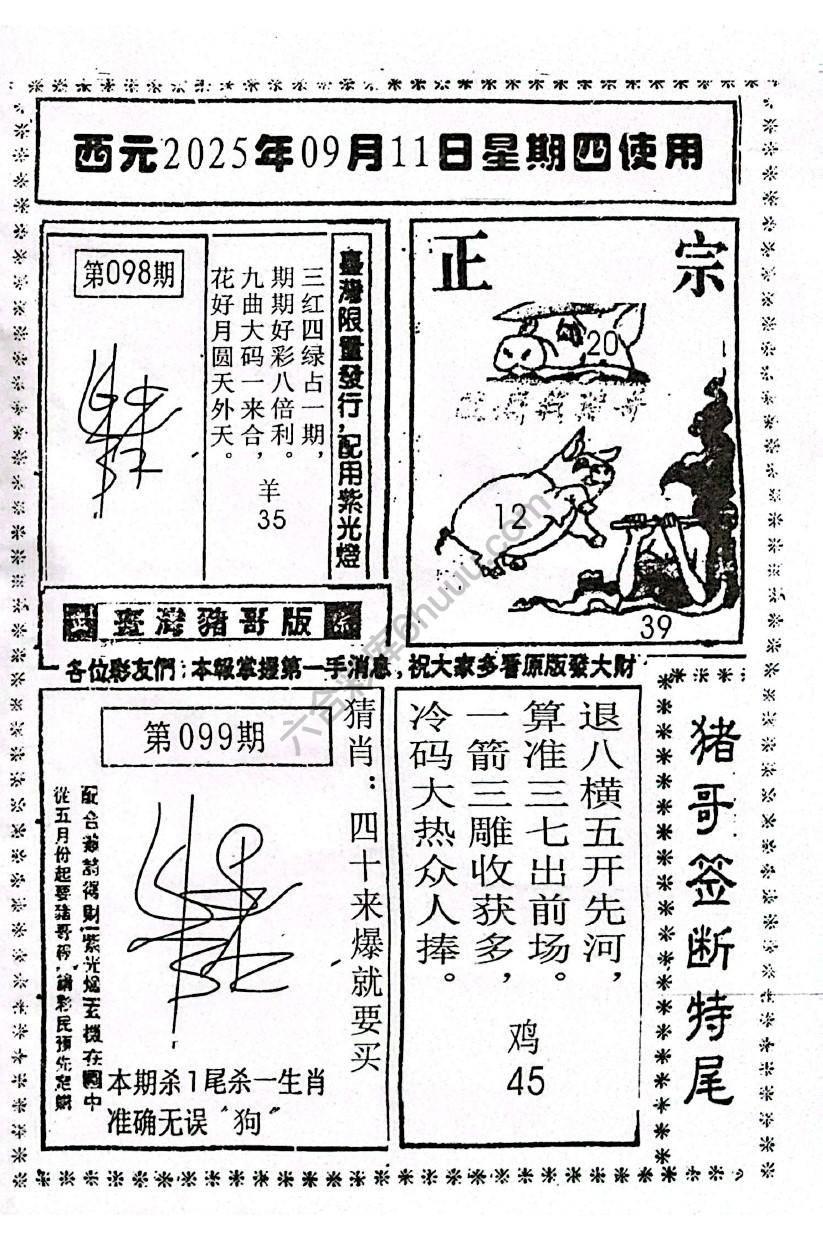 西元2025年09月11日星期四使用
第098期
臺灣限量發行,配用紫光燈
三红四绿占一期,
期期好彩八倍利。
九曲大码一来合,
花好月圆天外天。
羊
35
正宗
20
12
39
臺灣豬哥版
各位彩友們:本報掌握第一手消息,祝大家多看原版發大財
第099期
猜肖:四十来爆就要买
從五月份起要豬哥報,請彩民預先定購
本期杀1尾杀一生肖
准确无误〝狗〞
退八横五开先河,
算准三七出前场。
一箭三雕收获多,
冷码大热众人捧。
鸡
45
猪哥签断特尾
六合彩库6huuu.com